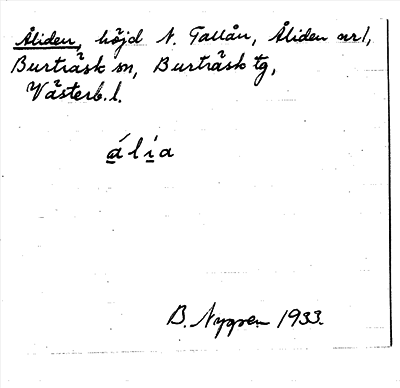 Åliden, höjd N. Tallån, Åliden nr 1,
Burträsk sn, Burträsk tg,
Västerb. l.
ália
B. Nygren 1933.